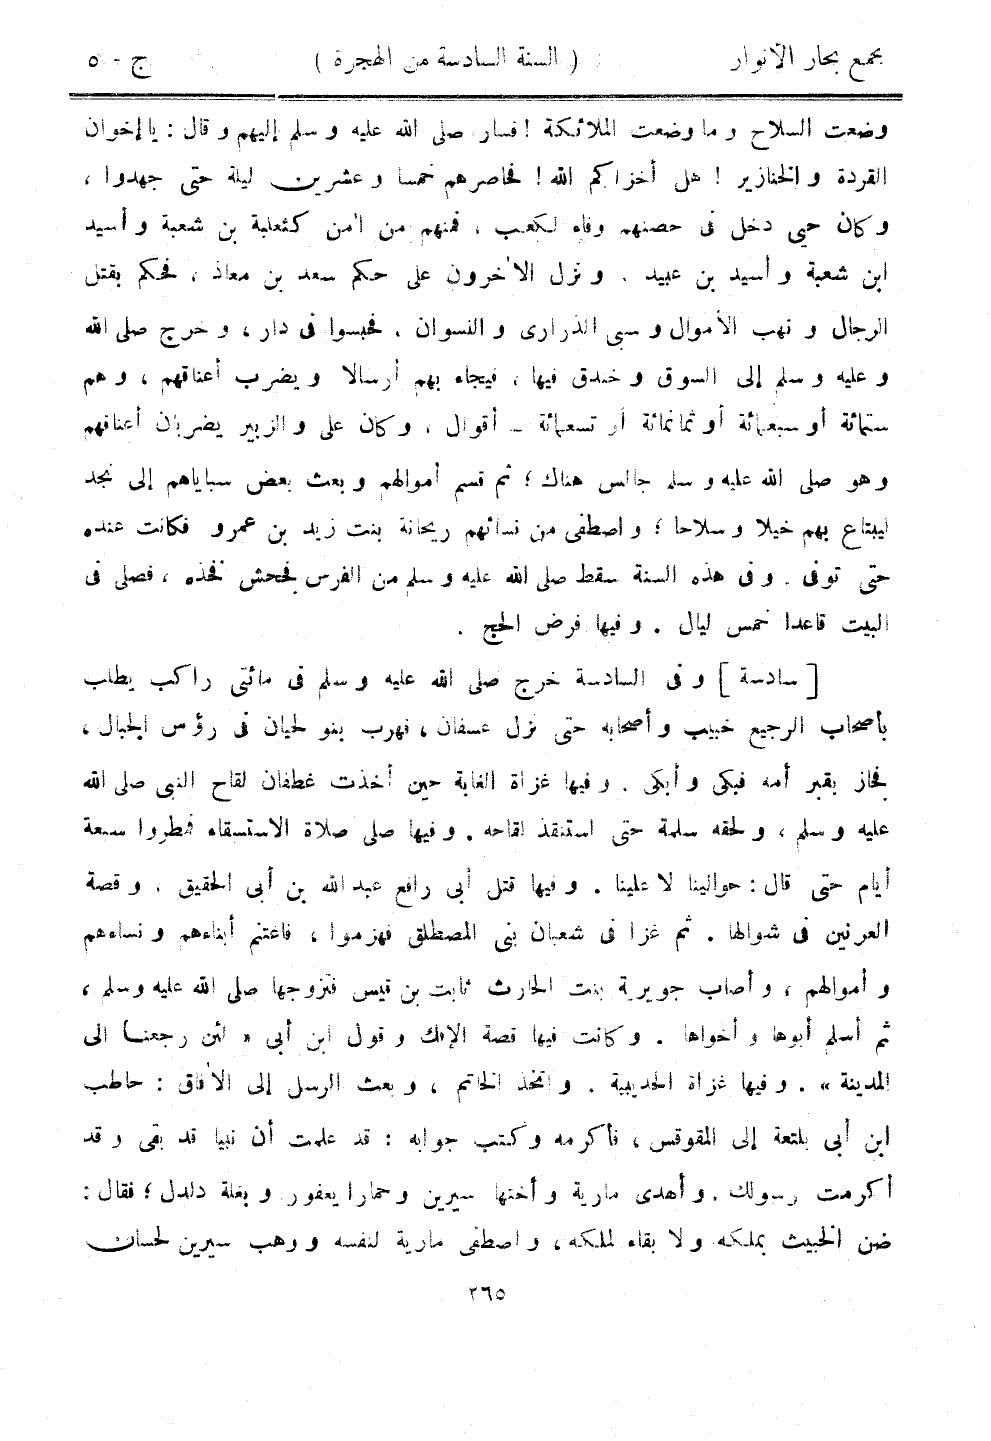 مجمع بحار الأنوار ( السنة السادسة من الهجرة ) ج - ٥
وضعت السلاح و ما وضعت الملائكة ! فسار صلى الله عليه و سلم إليهم و قال : يا إخوان
القردة و الخنازير ! هل أخزاكم الله ! فحاصرهم خمسا و عشرين ليلة حتى جهدوا ،
و كان حيى دخل فى حصنهم وفاء لكعب ، فمنهم من آمن كثعلبة بن شعبة و أسيد
ابن شعبة و أسيد بن عبيد . و نزل الآخرون على حكم سعد بن معاذ ، فحكم بقتل
الرجال و نهب الأموال و سبى الذرارى و النسوان . فحبسوا فى دار ، و خرج صلى الله
و عليه و سلم إلى السوق و خندق فيها ، فيجاء بهم أرسالا و يضرب أعناقهم ، و هم
ستمائة أو سبعمائة أو ثمانمائة أو تسعمائة - أقوال ، و كان على و الزبير يضربان أعناقهم
و هو صلى الله عليه و سلم جالس هناك ؛ ثم قسم أموالهم و بعث بعض سباياهم إلى نجد
ليبتاع بهم خيلا و سلاحا ؛ و اصطفى من نسائهم ريحانة بنت زيد بن عمرو فكانت عنده
حتى توفى . و فى هذه السنة سقط صلى الله عليه و سلم من الفرس فجحش فخذه ، فصلى فى
البيت قاعدا خمس ليال . و فيها فرض الحج .
[ سادسة ] و فى السادسة خرج صلى الله عليه و سلم فى مائتى راكب يطلب
بأصحاب الرجيع خبيب و أصحابه حتى نزل عسفان ، فهرب بنو لحيان فى رؤس الجبال ،
فجاز بقبر أمه فبكى و أبكى . و فيها غزاة الغابة حين أخذت غطفان لقاح النبى صلى الله
عليه و سلم ، و لحقه سلمة حتى استنقذ لقاحه . و فيها صلى صلاة الاستسقاء فمطروا سبعة
أيام حتى قال : حوالينا لا علينا . و فيها قتل أبى رافع عبد الله بن أبى الحقيق ، و قصة
العرنين فى شوالها . ثم غزا فى شعبان بنى المصطلق فهزموا ، فاغتنم أبناءهم و نساءهم
و أموالهم ، و أصاب جويرية بنت الحارث ثابت بن قيس فتزوجها صلى الله عليه وسلم ،
ثم أسلم أبوها و أخواها . و كانت فيها قصة الإفك و قول ابن أبى « لئن رجعنا الى
المدينة » . و فيها غزاة الحديبية . و اتخذ الخاتم ، و بعث الرسل إلى الآفاق : حاطب
ابن أبى بلتعة إلى المقوقس ، فأكرمه و كتب جوابه : قد علمت أن نبيا قد بقى و قد
أكرمت رسولك . و أهدى مارية و أختها سيرين و حمارا يعفور و بغلة دلدل ؛ فقال :
ضن الخبيث بملكه و لا بقاء لملكه ، و اصطفى مارية لنفسه و وهب سيرين لحسان
٢٦٥